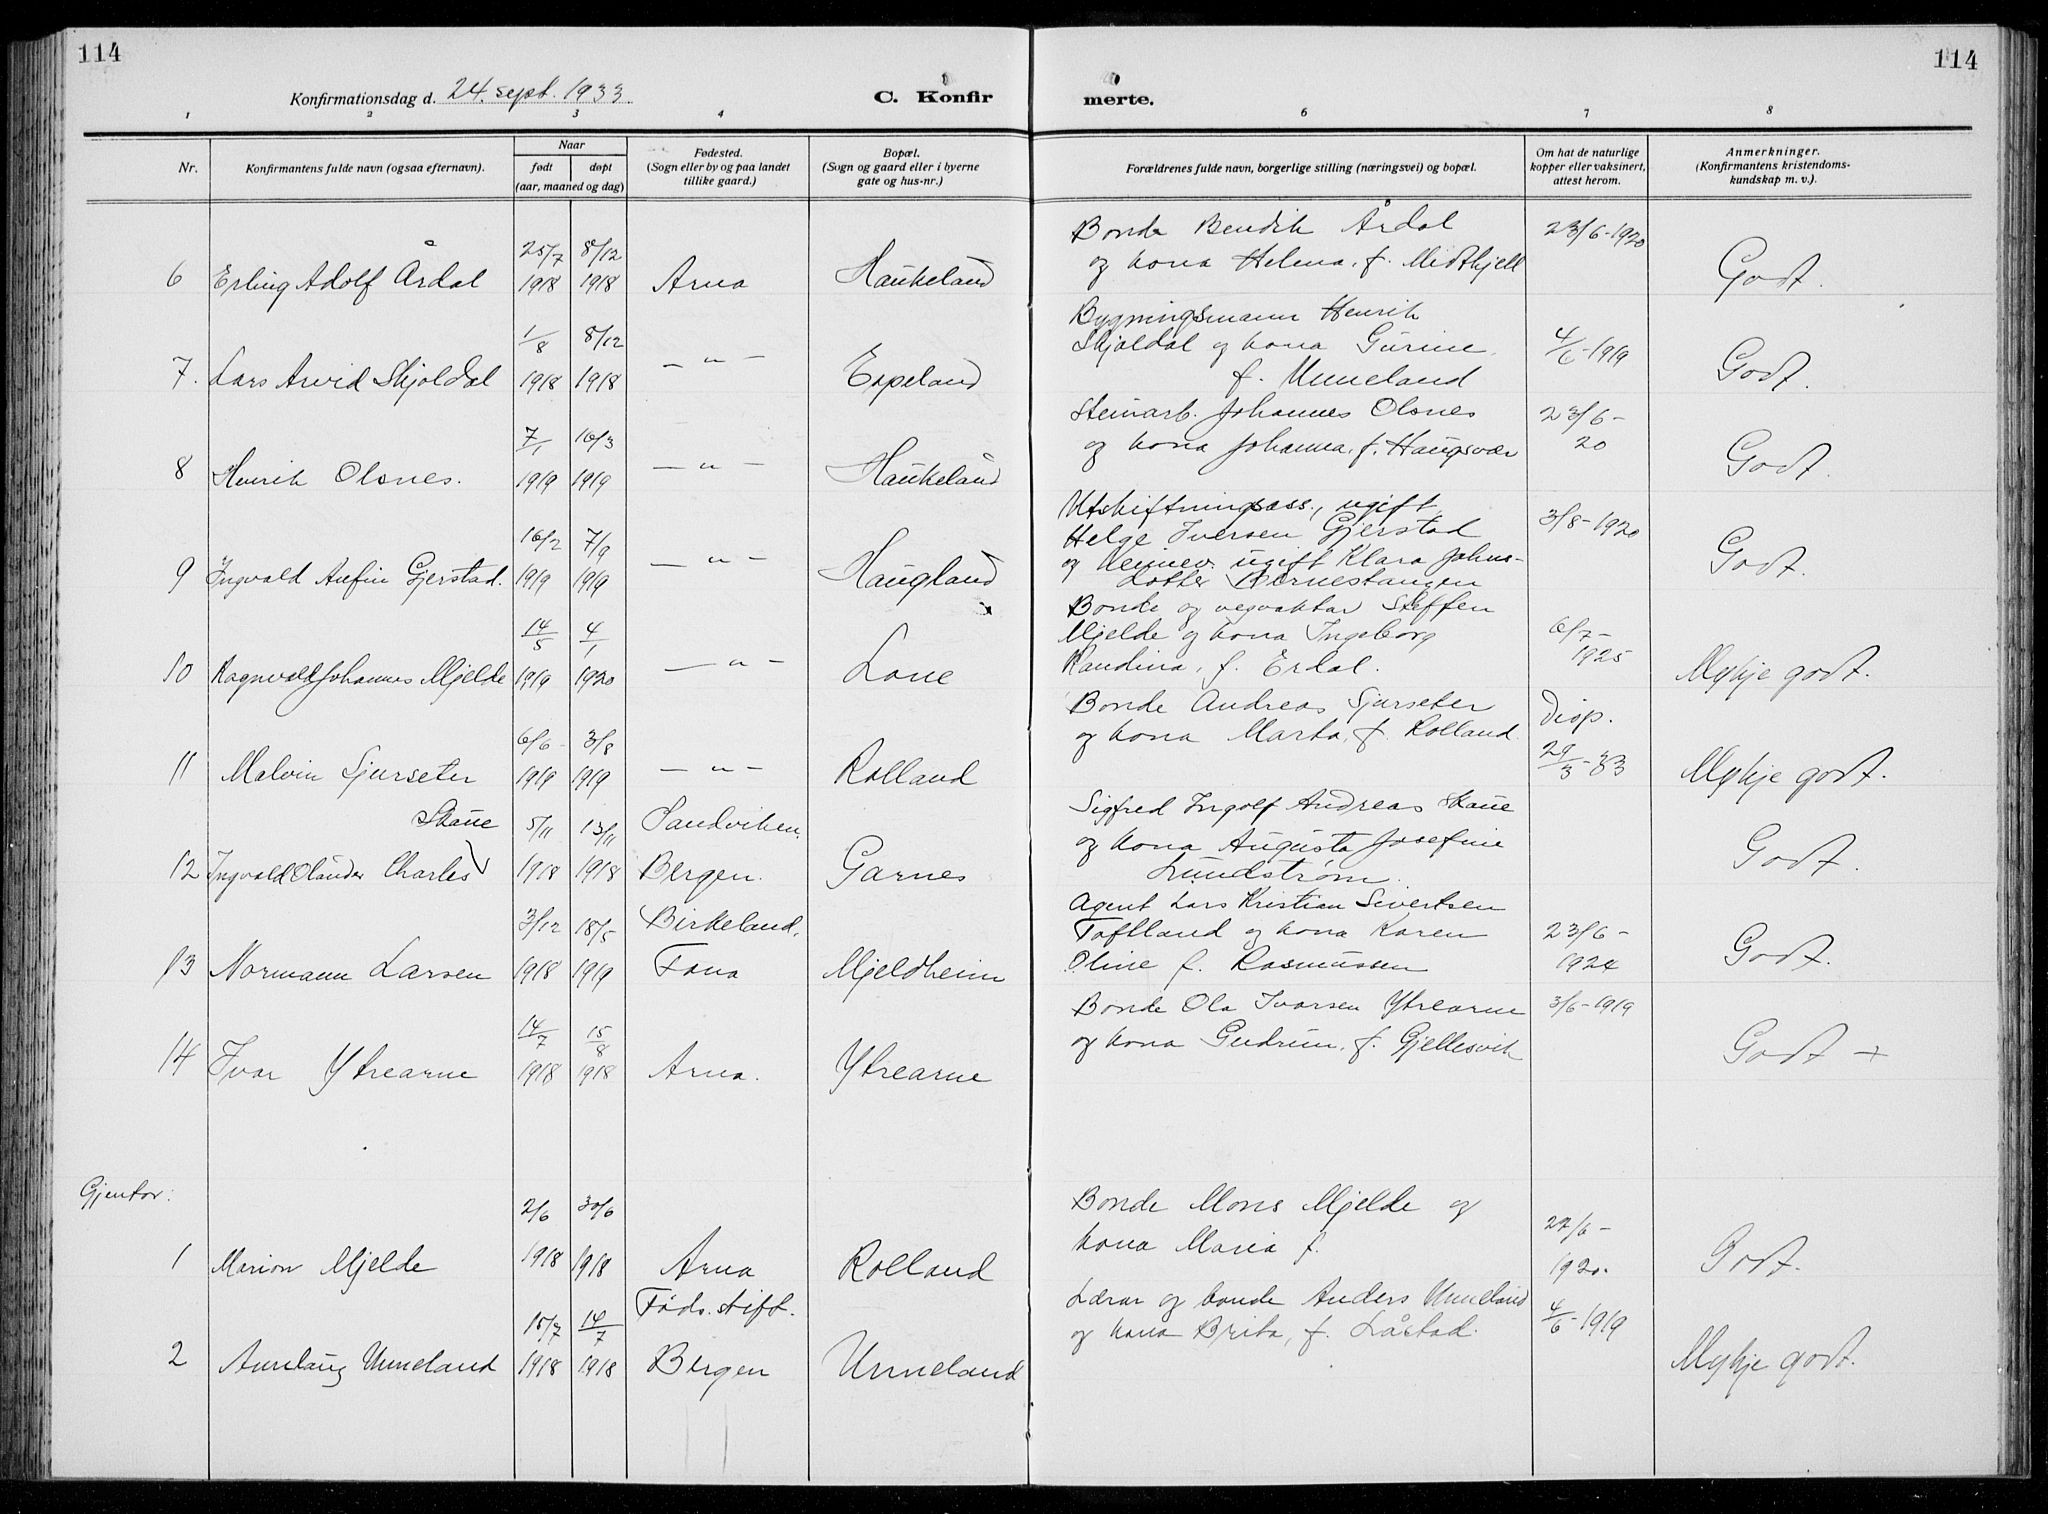 114
114
Konfirmationsdag d. 24. sept. 1933.
C. Konfir
merte.
1 2 3 4 5 6 7 8
Nr.
Konfirmantens fulde navn (ogsaa efternavn).
Naar
født
døpt
(aar, maaned og dag)
Fødested.
(Sogn eller by og paa landet
tillike gaard.)
Bopæl.
(Sogn og gaard eller i byerne
gate og hus-nr.)
Forældrenes fulde navn, borgerlige stilling (næringsvei) og bopæl.
Om hat de naturlige
kopper eller vaksinert,
attest herom.
Anmerkninger.
(Konfirmantens kristendoms-
kundskap m. v.).
6 Erling Adolf Årdal 25/7 1918 8/12 1918 Arna Haukeland
Bonde Bendik Årdal
og kona Helena, f. Midtkjell
23/6-1920
Godt.
7. Lars Arvid Skjoldal 1/8 1918 8/12 1918 — " — Espeland
Bygningsmann Henrik
Skjoldal og kona Gurine,
f. Unneland
4/6-1919
Godt.
8 Henrik Olsnes. 7/1 1919 16/3 1919 — " — Haukeland
Steinarb. Johannes Olsnes
og kona Johanna, f. Haugsvær
23/6-
20
Godt.
9 Ingvald Anfin Gjerstad. 16/2 1919 7/9 1919 — " — Haugland
Utskiftningsass., ugift
Helge Iversen Gjerstad
og heimev. ugift Klara Johns-
dotter Børnestangen
3/8-1920
Godt.
10 Ragnvald Johannes Mjelde 14/5 1919 4/1 1920 — " — Lone
Bonde og vegvaktar Steffen
Mjelde og kona Ingeborg
Randina, f. Erdal.
6/7-
1925
Mykje godt.
11 Malvin Sjurseter 6/6 1919 3/8 1919 — " — Rolland
Bonde Andreas Sjurseter
og kona Marta, f. Rolland.
Disp.
29/3-33
Mykje godt.
12 Ingvald Olander Charles Skaue 5/11 1918 13/11 1918 Sandviken, Bergen. Garnes
Sigfred Ingolf Andreas Skaue
og kona Augusta Josefine
Lundstrøm.
Godt.
13 Normann Larsen 3/12 1918 18/5 1919 Birkeland, Fana Mjeldheim
Agent Lars Kristian Sivertsen
Toftland og kona Karen
Oline f. Rasmussen
23/6-
1924
Godt.
14 Ivar Ytrearne 14/7 1918 15/8 1918 Arna. Ytrearne
Bonde Ola Ivarsen Ytrearne
og kona Gudrun, f. Gjellesvik
3/6-1919
Godt +
Gjentor:
1 Marion Mjelde 2/6 1918 30/6 1918 Arna Rolland
Bonde Mons Mjelde og
kona Maria f.
22/6-
1920.
Godt.
2 Aunlaug Unneland 15/7 1918 14/7 1918 Føds. stift. Bergen Unneland
Lærar og bonde Anders Unneland
og kona Brita, f. Låstad.
4/6-1919
Mykje godt.